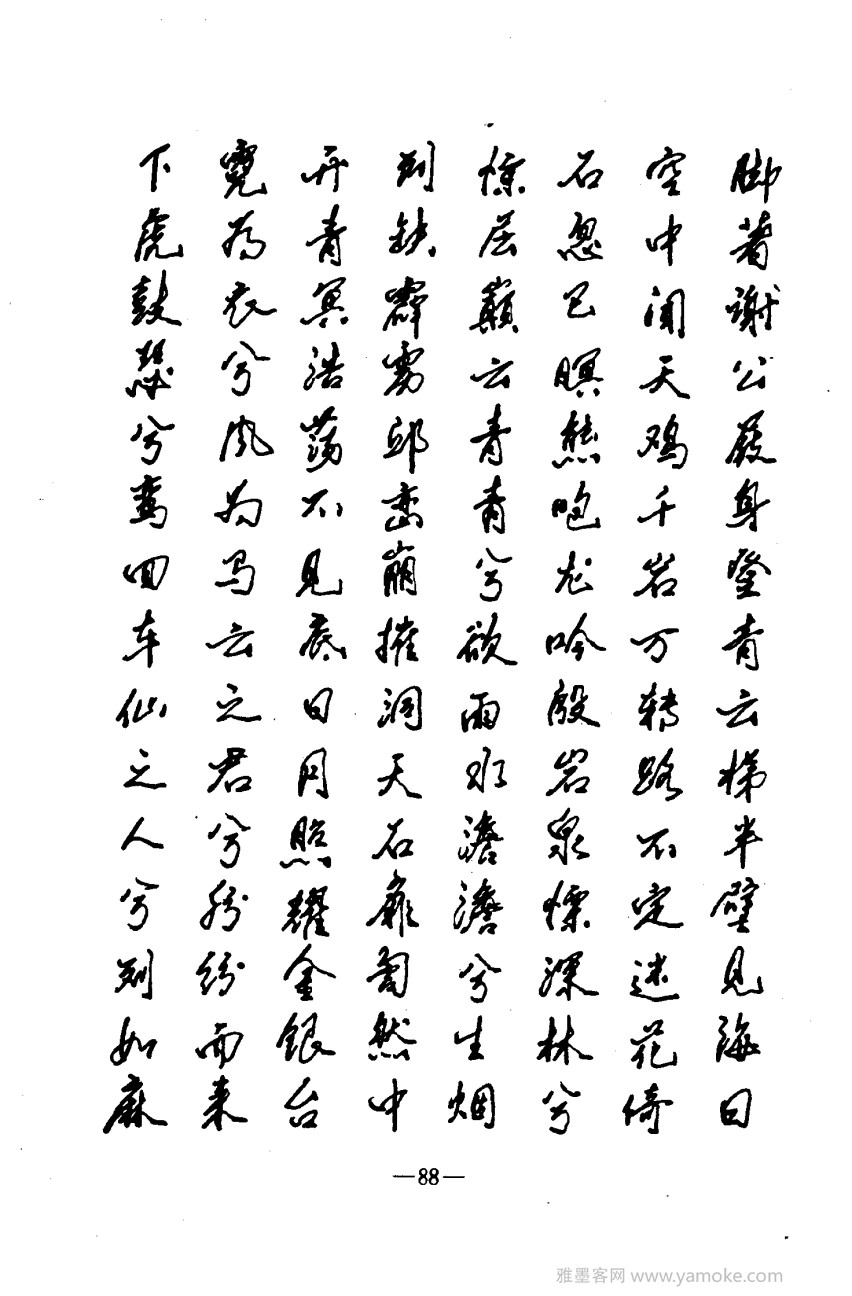 脚著谢公屐身登青云梯半壁见海日
空中闻天鸡千岩万转路不定迷花倚
石忽已暝熊咆龙吟殷岩泉慄深林兮
惊层巅云青青兮欲雨水澹澹兮生烟
列缺霹雳邱峦崩摧洞天石扉訇然中
开青冥浩荡不见底日月照耀金银台
霓为衣兮风为马云之君兮纷纷而来
下虎鼓瑟兮鸾回车仙之人兮列如麻
—88—
雅墨客网 www.yamoke.com